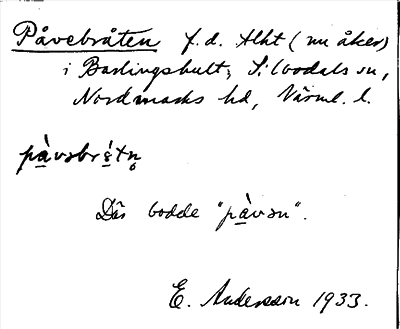 Påvebråten f.d. tlht (nu åker)
i Barlingshult, Silbodals sn,
Nordmarks hd, Värml. l.
pàvəbrå̀tn̥
Där bodde "pàvən".
E. Andersson 1933.